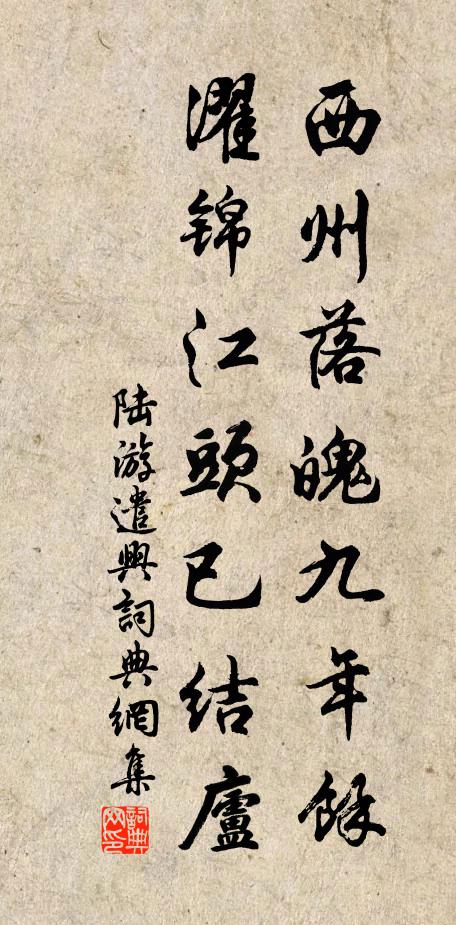 西州落魄九年餘
濯錦江頭已結廬
陸游遣興詞典網集
詞典网印